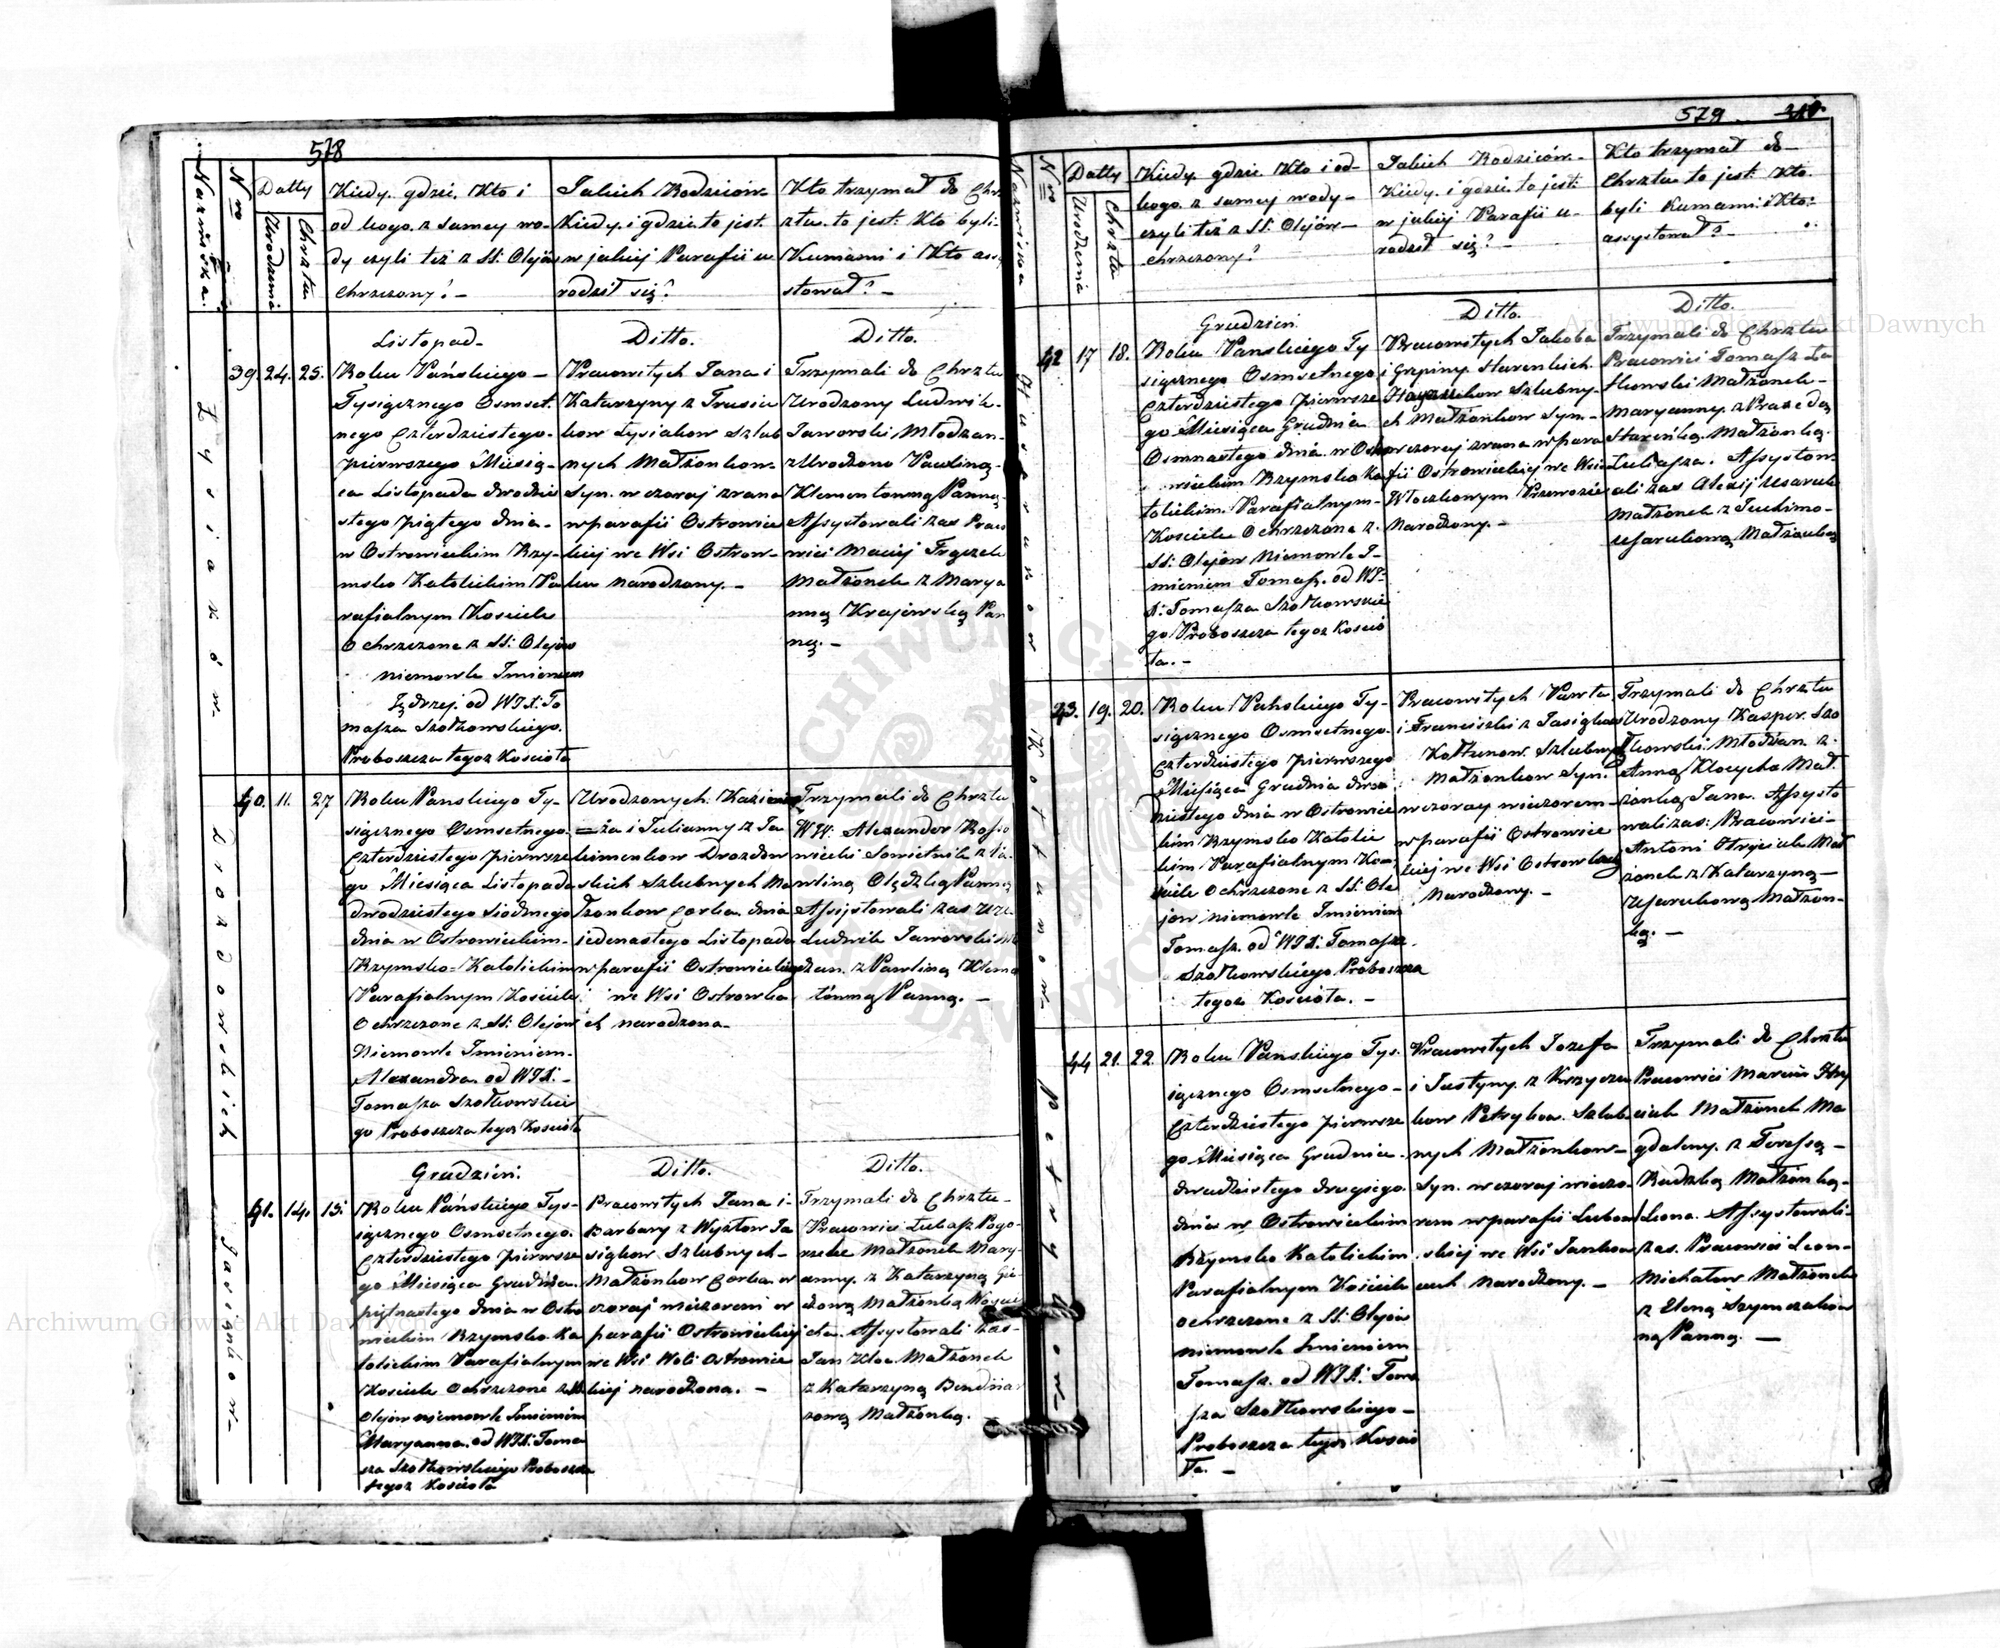 578
Nazwiska.
Nro
Datty
Urodzenia
Chrztu
Kiedy. gdzie. Kto i
od kogo. z samey wo-
dy czyli też z SS: Olejów
chrzczony? -
Jakich Rodziców
Kiedy. i gdzie to jest.
w jakiej Parafii u
rodził się?
Kto trzymał do Chr
ztu. to jest: Kto byli
Kumami i Kto assy
stował? -
Listopad.
Ditto.
Ditto.
Łysiaków.
39. 24. 25.
Roku Pańskiego -
Tysiącznego Osmset.
nego Czterdziestego.
pierwszego Miesią-
ca Listopada dwódzie
stego piątego dnia.
w Ostrowieckim Rzy-
msko Katolickim Pa
rafialnym Kościele
Ochrzczone z SS: Olejów
niemowle Imieniem
Jędrzej. od WJX: To
masza Szołkowskiego.
Proboszcza tegoz Kościoła
Pracowitych Jana i
Katarzyny z
ków Łysiaków Szlub
nych Małżonków.
Syn. wczoraj zrana
w parafii Ostrowiec
kiej we Wsi Ostrow-
ku narodzony. -
Trzymali do Chrztu
Urodzony Ludwik.
Jaworski Młodzian.
z Urodzoną Pauliną.
Klementówną Panną.
Assystowali zas Praco
wici Maciej Frączek
Małżonek z Marya
nną Krajewską Pan
ną. -
Drozdowskich
40. 11. 27
Roku Pańskiego Ty-
siącznego Osmsetnego.
Czterdziestego pierwsze
go Miesiąca Listopada
dwódziestego siódmego
dnia w Ostrowieckim.
Rzymsko=Katolickim
Parafialnym Kościele
Ochrzczone z SS: Olejów
Niemowle Imieniem.
Alexandra. od WJX: -
Tomasza Szołkowskie
go Proboszcza tegoz Kościoła
Urodzonych. Kazimie
rza i Julianny z Ja
kimenków Drozdow
skich Szlubnych Ma
łżonków Córka. dnia
jedenastego Listopada
w parafii Ostrowieckiej
we Wsi Ostrówka
ch narodzona.
Trzymali do Chrztu
WW: Alexander
Sowietnik z Pa-
wliną Olędzką Panną
Assystowali zas Urz:
Ludwik Jaworski Mło
dzian. z Pawliną Kleme
ntówną Panną. -
Grudzień.
Ditto.
Ditto.
Jasiąków
41. 14. 15.
Roku Pańskiego Tys-
iącznego Osmsetnego.
Czterdziestego pierwsze
go Miesiąca Grudnia.
piętnastego dnia w Ostro
wieckim Rzymsko Ka
tolickim Parafialnym
Kościele Ochrzczone z SS
Olejów niemowle Imieniem
Maryanna. od WJX: Toma
sza Szołkowskiego Proboszcza
tegoz Kościoła
Pracowitych Jana i-
Barbary z Wyktów Ja
siąków Szlubnych-
Małżonków Córka. w
czoraj wieczorem w
parafii Ostrowieckiej
we Wsi Woli Ostrowiec
kiej narodzona. -
Trzymali do Chrztu-
Pracowici Łukasz Pogo-
rzelec Małżonek Mary-
anny. z Katarzyną
Małżonką
Assystowali zas-
Jan Kloc Małżonek
z Katarzyną Bednar
zową Małżonką.
579
Nazwiska
Nro
Datty
Urodzenia
Chrztu
Kiedy gdzie Kto i od-
kogo. z samey wody-
czyli też z SS: Olejów-
chrzczony?
Jakich Rodziców.
Kiedy. i gdzie to jest:
w jakiej Parafii u-
rodził się? -
Kto trzymał do-
Chrztu to jest: Kto.
byli Kumami: i Kto:
assystował? -
Grudzień.
Ditto.
Ditto.
42 17 18.
Roku Pańskiego Ty
siącznego Osmsetnego
Czterdziestego pierwsze
go Miesiąca Grudnia
Osmnastego dnia. w Ostro
wieckim Rzymsko Ka
tolickim. Parafialnym-
Kościele Ochrzczone z.
SS: Olejów Niemowle I-
mieniem Tomasz. od WJ-
X: Tomasza Szołkowskie
go Proboszcza tegoz Kościo
ła. -
Pracowitych Jakoba
i Szlubny-
ch Małżonków Syn-
wczoraj zrana w para
fii Ostrowieckiej we Wsi
Przewozie
Narodzony. -
Trzymali do Chrztu
Pracowici Tomasz
Małżonek-
Maryanny. z Praxedą
Małżonką.
Łukasza. Assystow-
ali zas Alexij
Małżonek z
Małżonką
Kołtunów
43. 19. 20.
Roku Pańskiego Ty-
siącznego Osmsetnego.
Czterdziestego pierwszego
Miesiąca Grudnia dwu
dziestego dnia w Ostrowiec
kim Rzymsko Katolic
kim Parafialnym Ko-
ściele Ochrzczone z SS: Ole
jów niemowle Imieniem
Tomasz. od WJX: Tomasza.
Szołkowskiego Proboszcza
tegoz Kościoła. -
Pracowitych Pawła
i Franciszki z Jasiąków
Kołtunów. Szlubnych
Małżonków Syn.
wczoray wieczorem-
w parafii Ostrowiec
kiej we Wsi Ostrówkach
Narodzony. -
Trzymali do Chrztu
Urodzony Kasper. Szo
łkowski: Młodzian. z.
Anną Kłocycha Mał.
żonką Jana. Assysto
wali zas: Pracowici-
Antoni Mał
żonek z Katarzyną-
Małżon-
ką. -
44 21. 22.
Roku Pańskiego Tys.
iącznego Osmsetnego-
Czterdziestego pierwsze
go Miesiąca Grudnia.
dwudziestego drugiego.
dnia w Ostrowieckim
Rzymsko Katolickim.
Parafialnym Kościele
ochrzczone z SS: Olejów
niemowle Imieniem
Tomasz. od WJX: Toma
sza Szołkowskiego-
Proboszcza tegoz Kościo
ła. -
Pracowitych Jozefa
i Justyny. z Krzyczu
ków Szlub
nych Małżonków-
Syn. wczoraj wieczo-
rem w parafii Lubom
skiej we Wsi Jankow
cach Narodzony. -
Trzymali do Chrztu
Pracowici Marcin
Małżonek Ma
gdaleny. z Teressą-
Rudzką Małżonką-
Leona. Assystowali-
zas. Pracowici Leon-
Michałow Małżonek
z Eleną Szymczaków
ną Panną. -
Archiwum Główne Akt Dawnych
Archiwum Główne Akt Dawnych